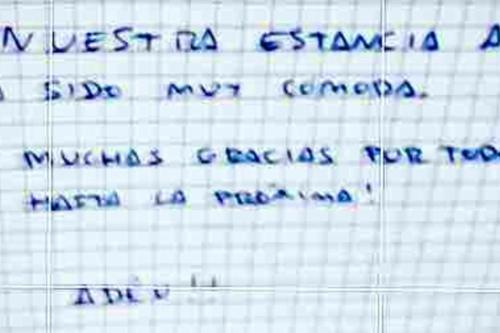 NUESTRA ESTANCIA A
SIDO MUY COMODA.
MUCHAS GRACIAS POR TOD
HASTA LA PRÓXIMA!
ADÉU!!